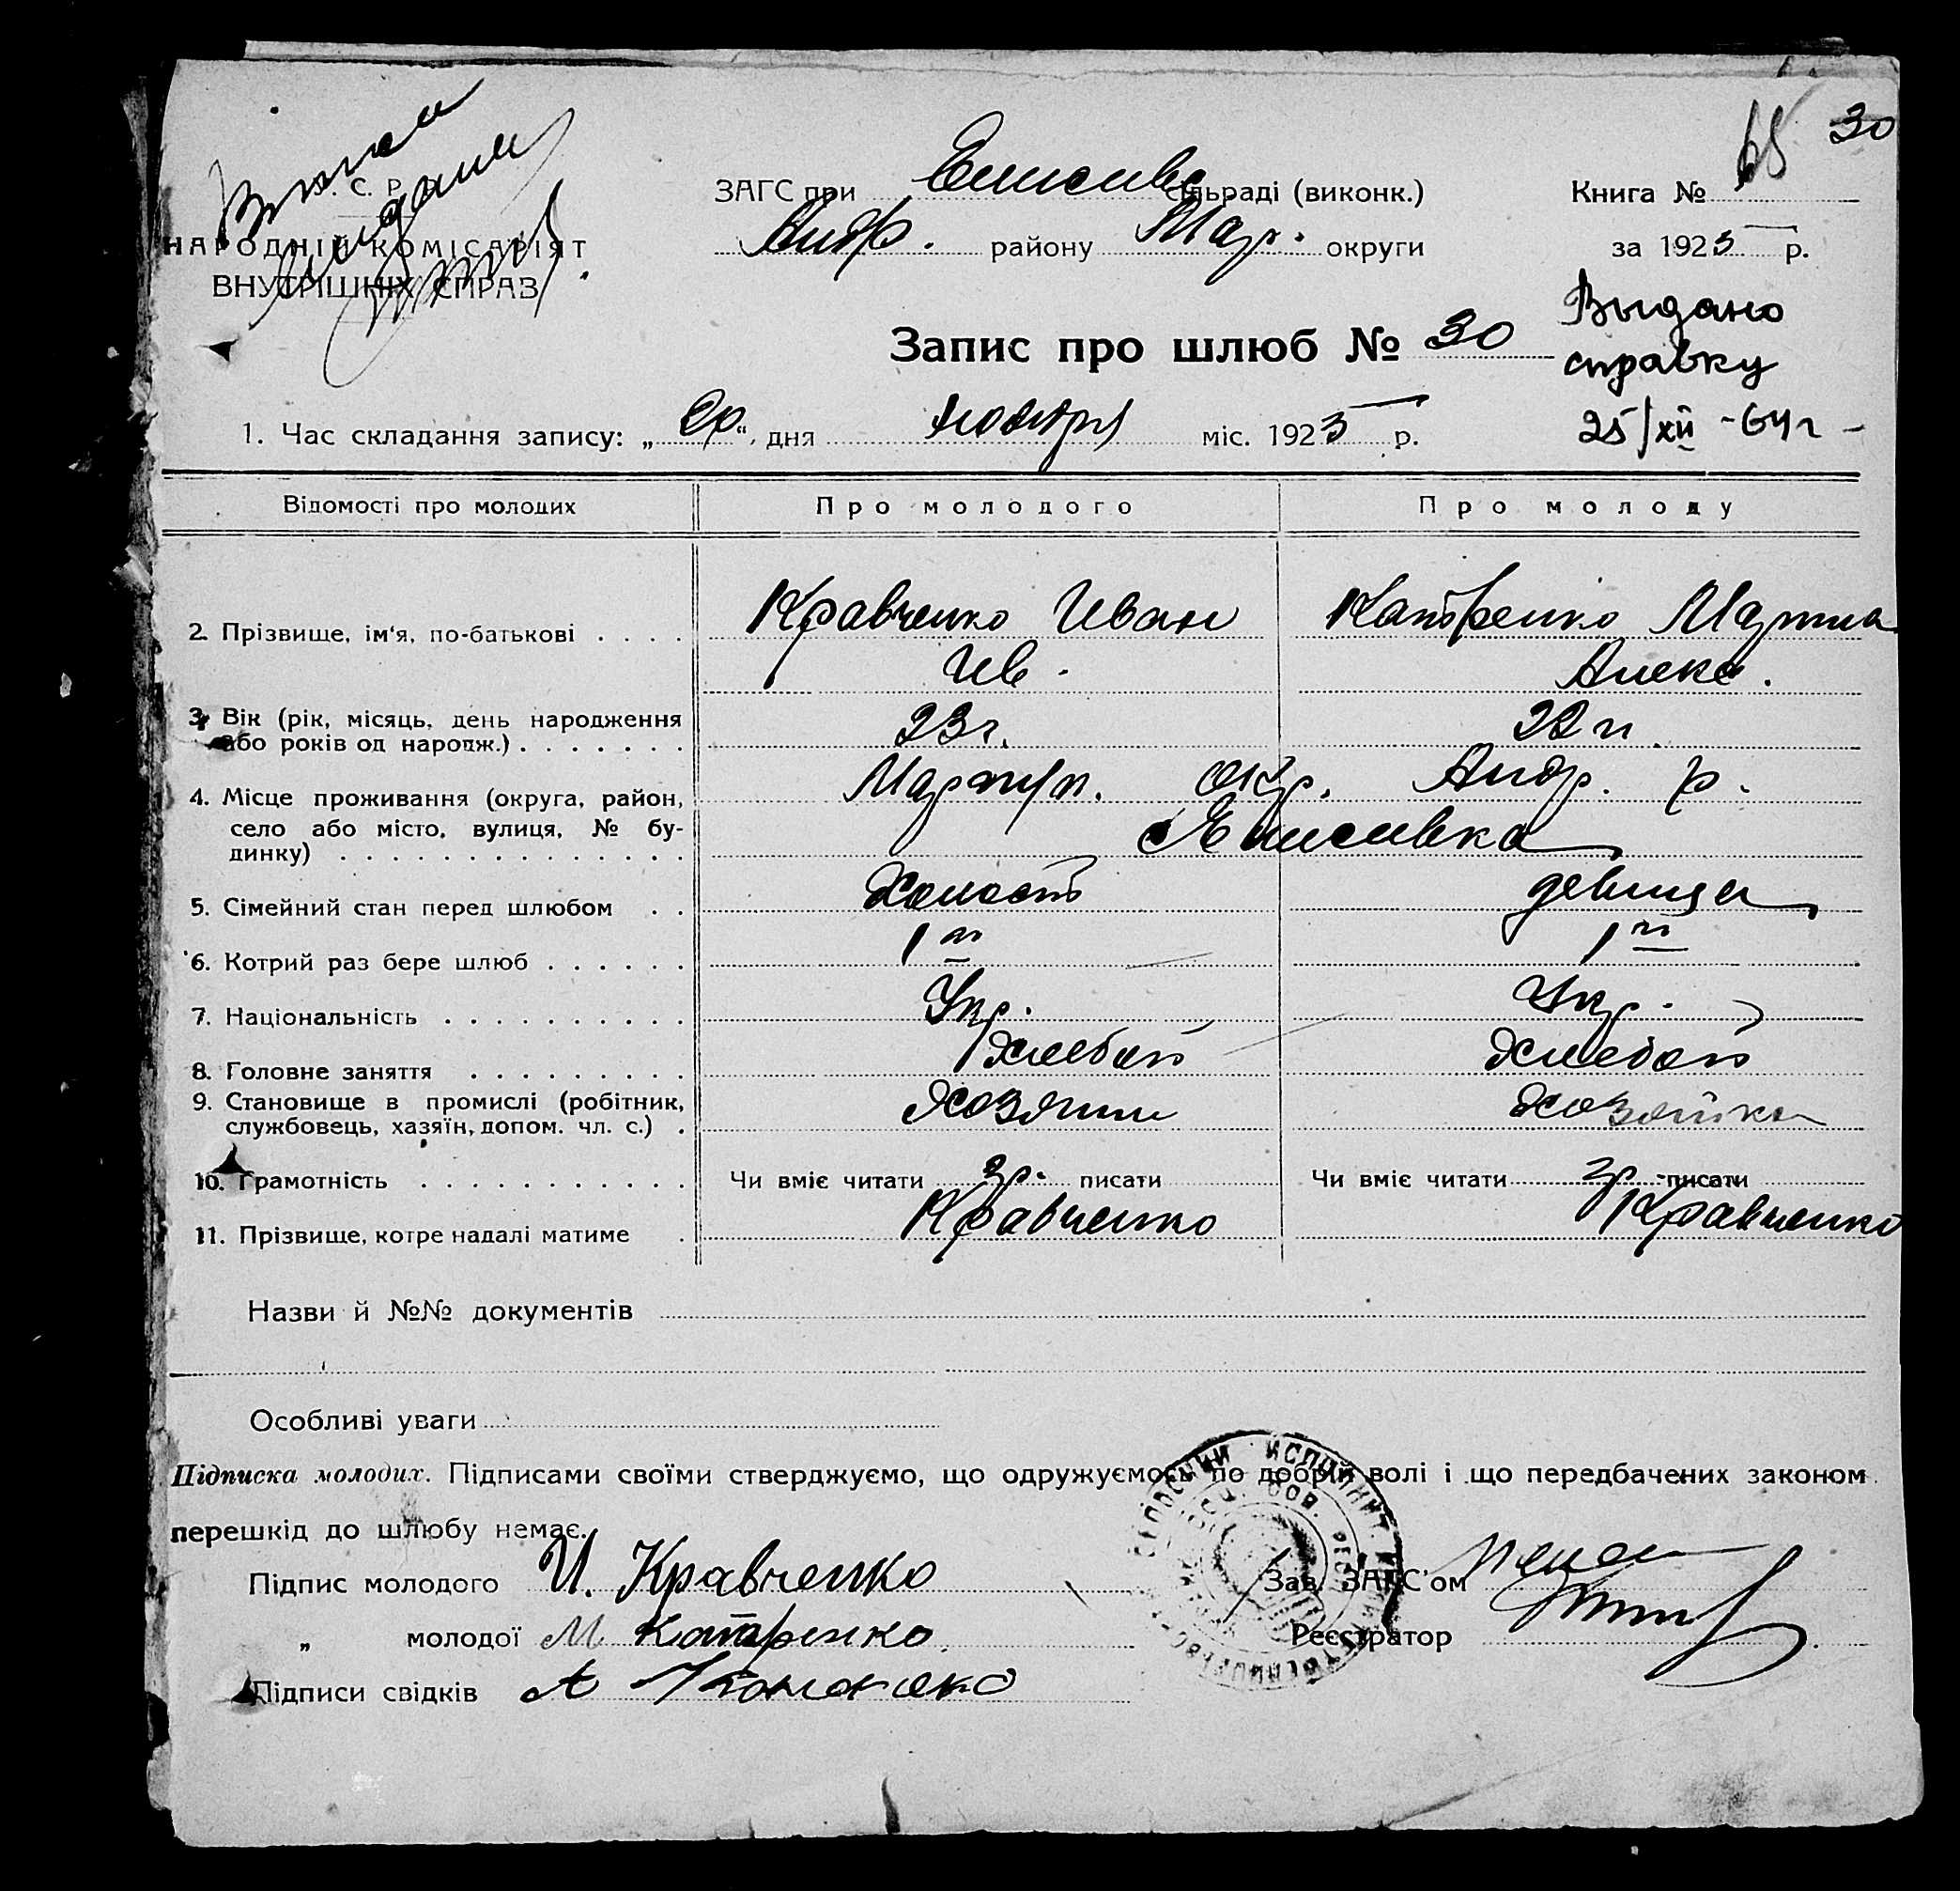 65 30
У. С. Р. Р.
НАРОДНІЙ КОМІСАРІЯТ
ВНУТРІШНІХ СПРАВ
ЗАГС при Елисивс сільраді (виконк.)
Андр. району Мар. округи
Книга №
за 1925 р.
Запис про шлюб № 30
Выдано
справку
25/XII - 64 г
1. Час складання запису: „20“ дня ноября міс. 1925 р.
Відомості про молодих Про молодого Про молоду
2. Прізвище, ім'я, по-батькові . . . . Кравченко Иван Катренко Мария
Ив. Алекс.
3. Вік (рік, місяць, день народження
або років од народж.) . . . . . . . 23 г. 22 г.
4. Місце проживання (округа, район, Мариуп. окр. Андр. р.
село або місто, вулиця, № бу-
динку) . . . . . . . . . . . . . . с Елисивка
5. Сімейний стан перед шлюбом . . Холост девица
6. Котрий раз бере шлюб . . . . . . 1й 1й
7. Національність . . . . . . . . . . Укр. Укр.
8. Головне заняття . . . . . . . . . Хлебоп Хлебоп
9. Становище в промислі (робітник,
службовець, хазяїн, допом. чл. с.) . Хозяин Хозяйка
10. Грамотність . . . . . . . . . . . Чи вміє читати гр. писати Чи вміє читати гр. писати
11. Прізвище, котре надалі матиме . Кравченко Кравченко
Назви й №№ документів
Особливі уваги
Підписка молодих. Підписами своїми стверджуємо, що одружуємось по добрій волі і що передбачених законом
перешкід до шлюбу немає.
Підпис молодого И. Кравченко Зав. ЗАГС'ом
„ молодої М Катренко Реєстратор
Підписи свідків А